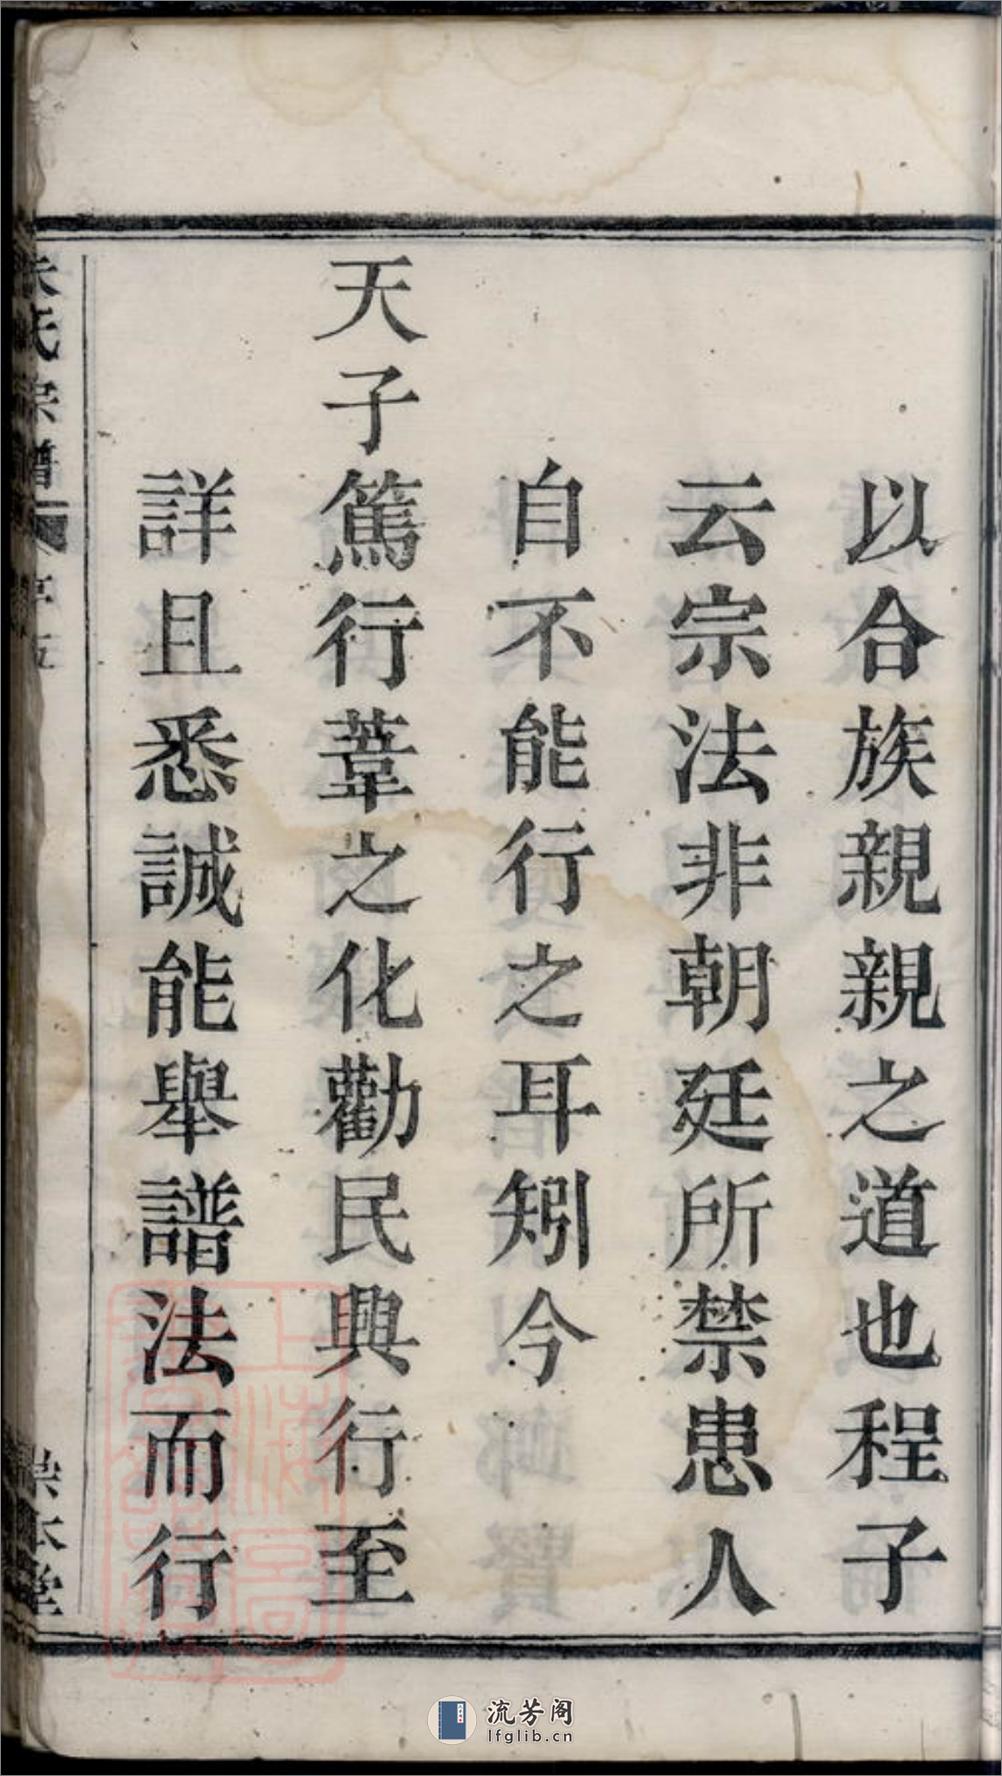 以合族親親之道也程子
云宗法非朝廷所禁患人
自不能行之耳矧今
天子篤行葦之化勸民興行至
詳且悉誠能舉譜法而行
氏宗譜
序
五
流芳阁
lfglib.cn